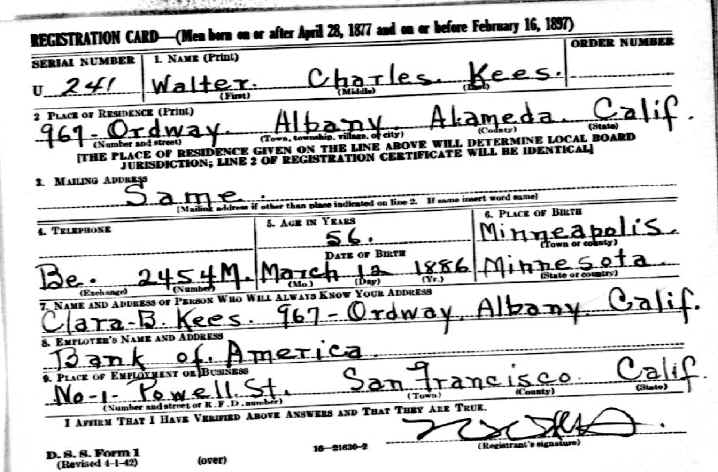 REGISTRATION CARD—(Men born on or after April 28, 1877 and on or before February 16, 1897)
SERIAL NUMBER 1. NAME (Print) ORDER NUMBER
U 241 Walter. Charles. Kees.
(First) (Middle) (Last)
2 PLACE OF RESIDENCE (Print)
967-Ordway. Albany. Alameda. Calif.
(Number and street) (Town, township, village, or city) (County) (State)
[THE PLACE OF RESIDENCE GIVEN ON THE LINE ABOVE WILL DETERMINE LOCAL BOARD
JURISDICTION; LINE 2 OF REGISTRATION CERTIFICATE WILL BE IDENTICAL]
3. MAILING ADDRESS
Same.
[Mailing address if other than place indicated on line 2. If same insert word same]
4. TELEPHONE 5. AGE IN YEARS 6. PLACE OF BIRTH
56. Minneapolis.
DATE OF BIRTH (Town or county)
Be. 2454M. March 12 1886 Minnesota.
(Exchange) (Number) (Mo.) (Day) (Yr.) (State or country)
7. NAME AND ADDRESS OF PERSON WHO WILL ALWAYS KNOW YOUR ADDRESS
Clara-B. Kees. 967-Ordway, Albany Calif.
8. EMPLOYER'S NAME AND ADDRESS
Bank of. America.
9. PLACE OF EMPLOYMENT OR BUSINESS
No-1- Powell. St. San Francisco Calif.
(Number and street or R. F. D. number) (Town) (County) (State)
I AFFIRM THAT I HAVE VERIFIED ABOVE ANSWERS AND THAT THEY ARE TRUE.
D. S. S. Form 1 16—21630-2 (Registrant's signature)
(Revised 4-1-42) (over)